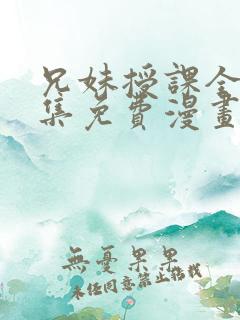 兄妹授課全
集免費漫畫
無憂果果
未经同意禁止搭载